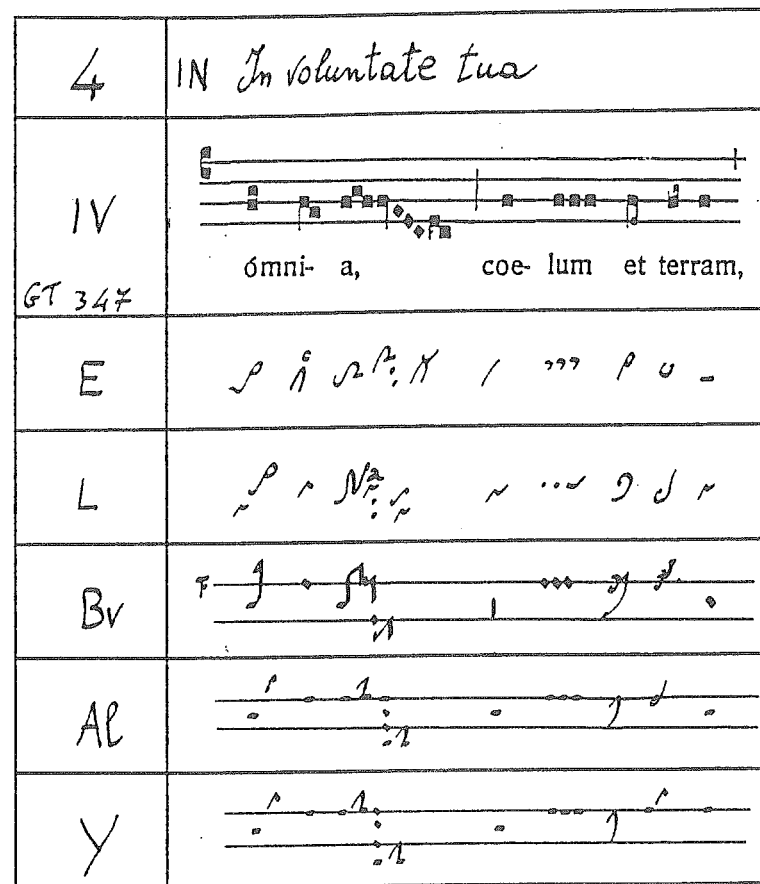 4
IN In voluntate tua
IV
GT 347
ómni- a, coe- lum et terram,
E
L
Bv
F
Al
Y